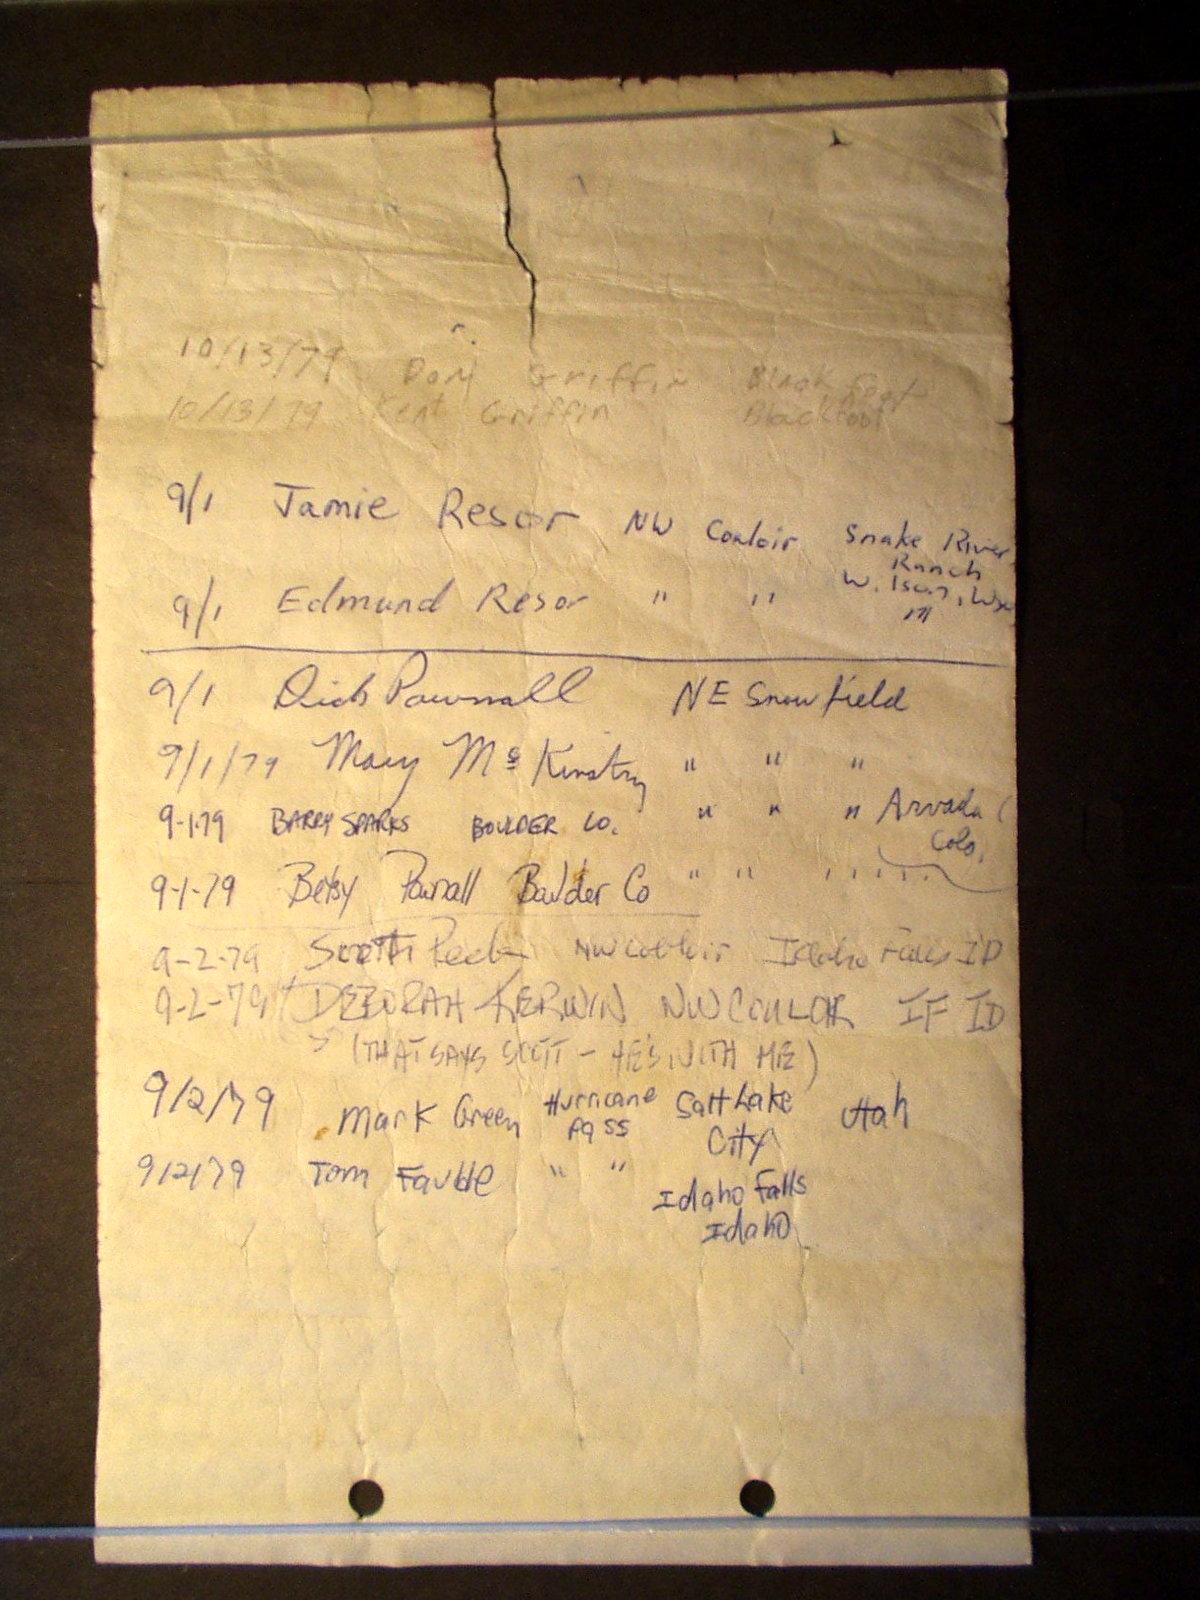 10/13/79 Don Griffin Blackfoot
10/13/79 Kent Griffin Blackfoot
9/1 Jamie Resor NW Couloir Snake River
Ranch
9/1 Edmund Resor " " Wilson, Wyo
9/1 Dick Pownall NE Snowfield
9/1/79 Mary Mc Kinstry " " "
9-1-79 BARRY SPARKS BOULDER CO. " " " Arvada
Colo.
9-1-79 Betsy Pownall Boulder Co " " " "
9-2-79 Scott NW Couloir Idaho Falls ID
9-2-79 DEBORAH KERWIN NW COULOIR IF ID
(THAT SAYS SCOTT - HE'S WITH ME)
9/2/79 Mark Green Hurricane Salt Lake Utah
Pass City
9/2/79 Tom " " Idaho Falls
Idaho